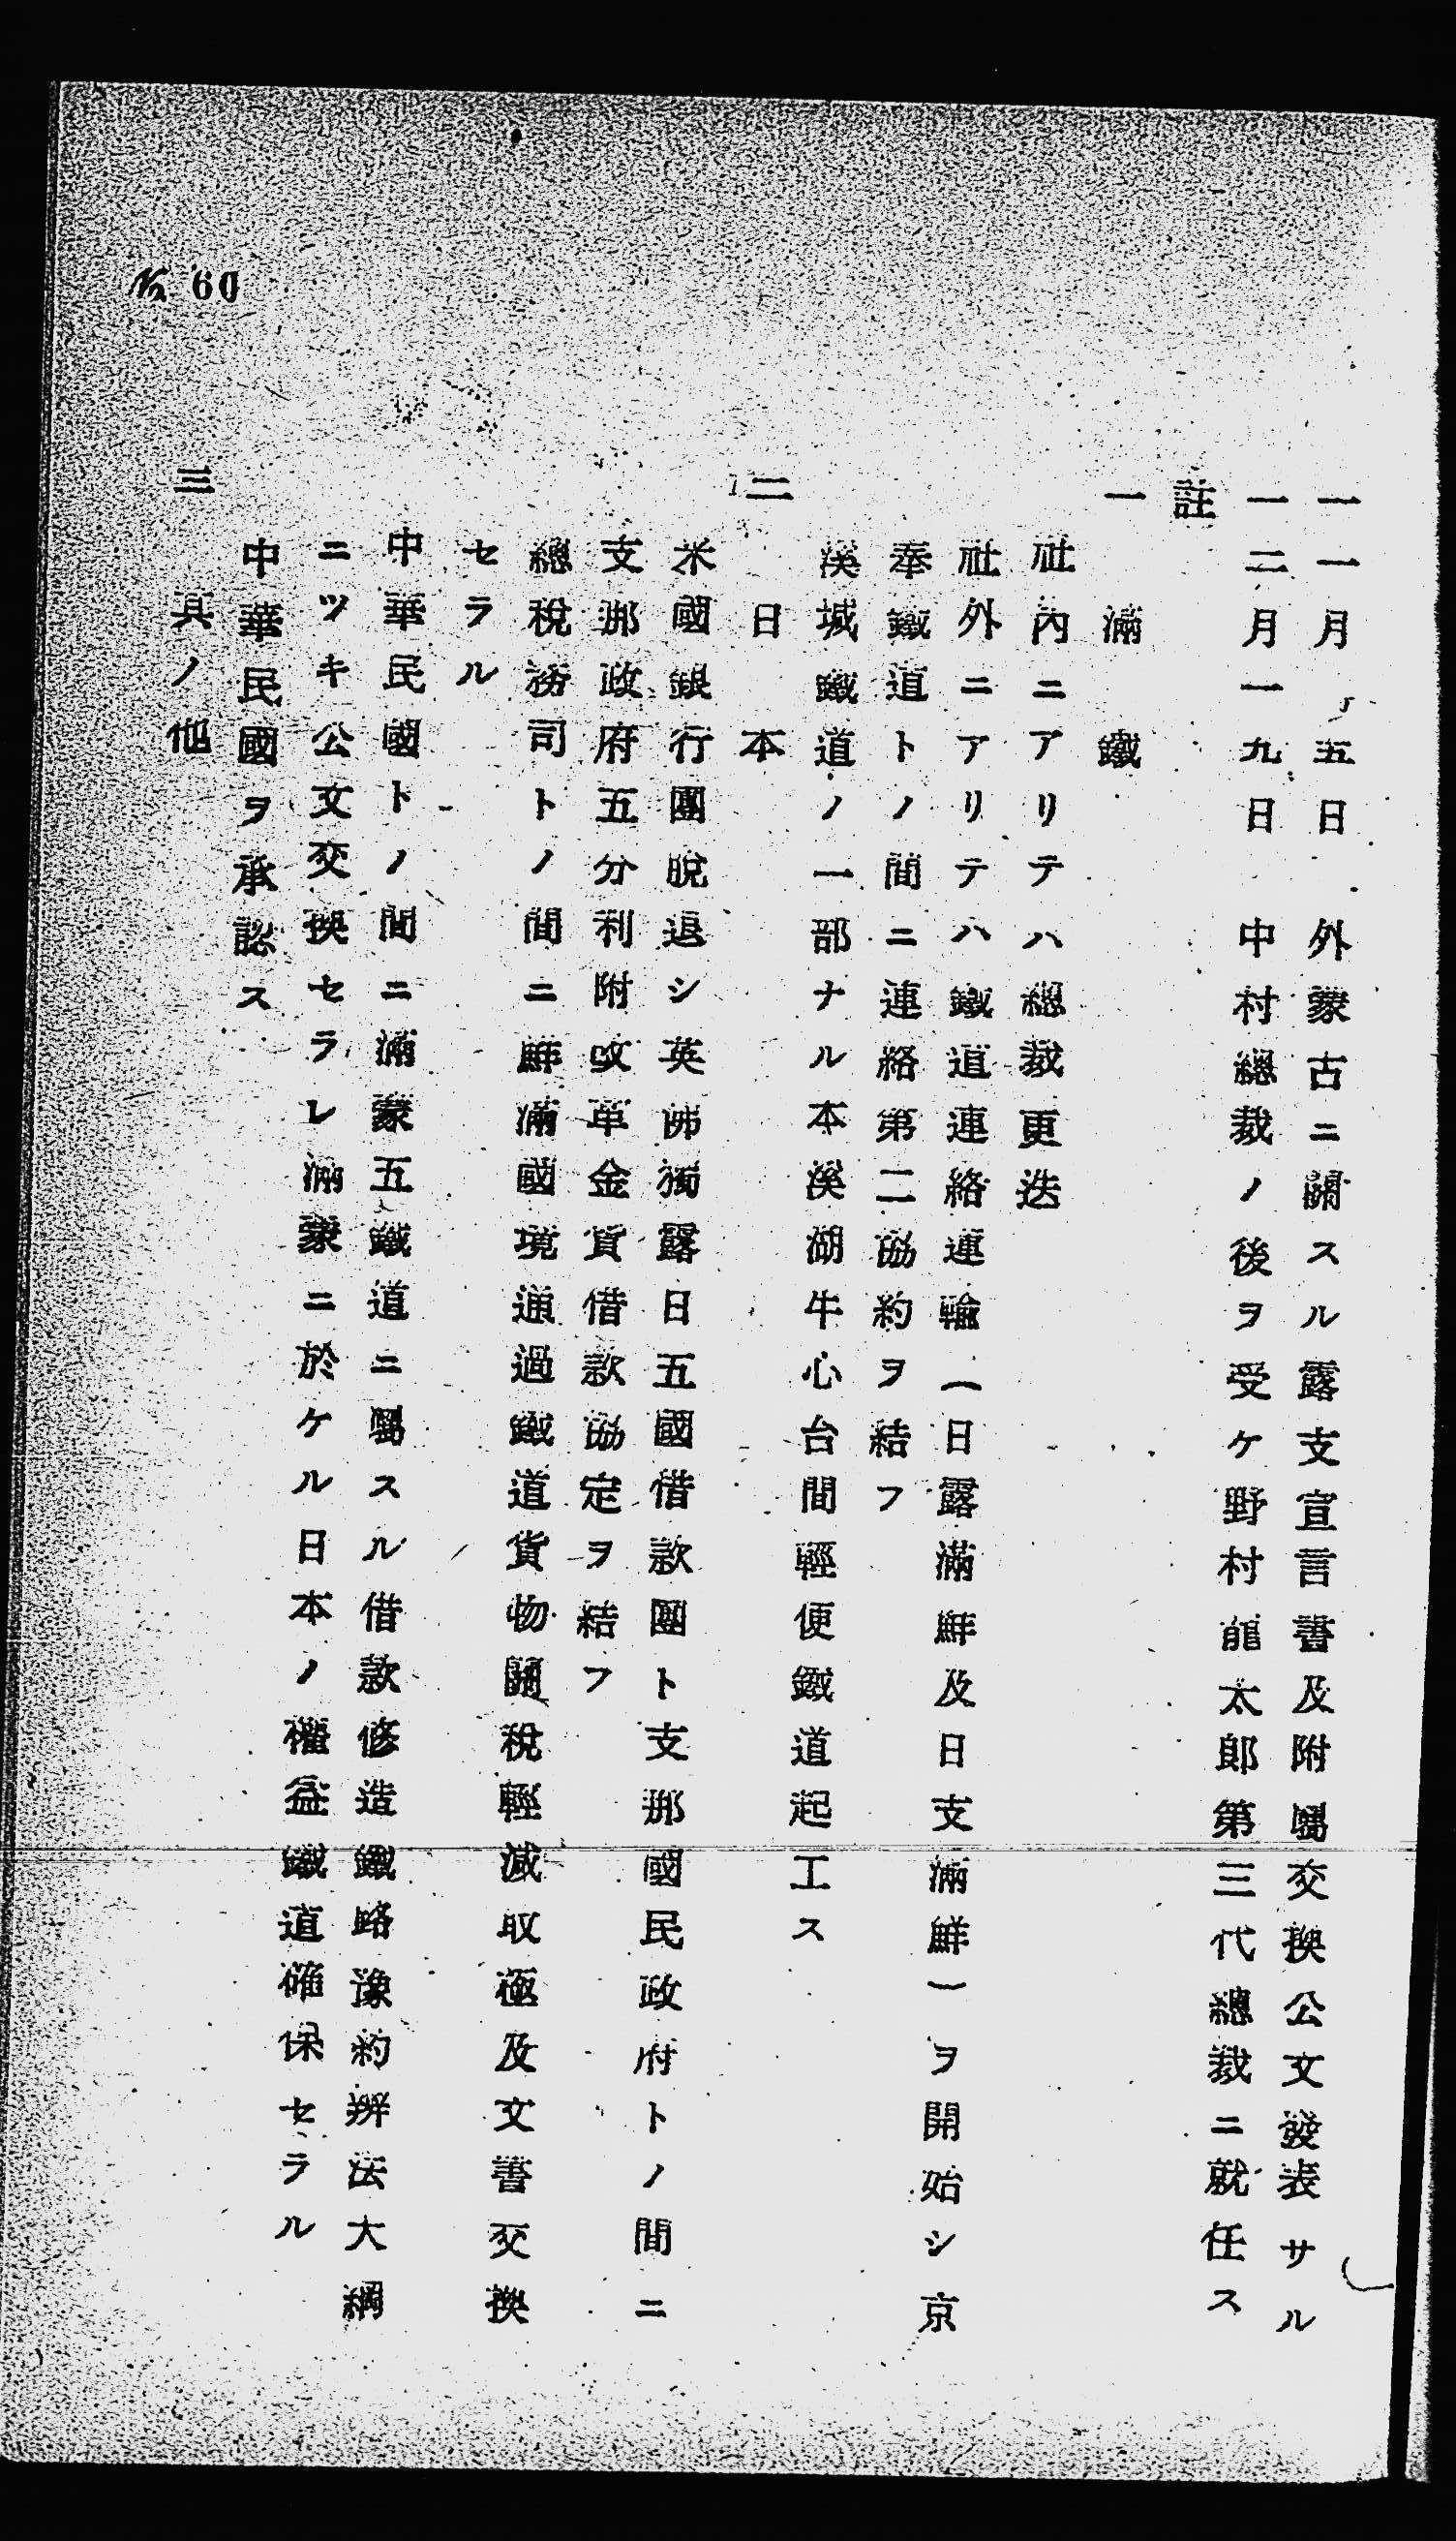 一一月五日　外蒙古ニ關スル露支宣言書及附屬交換公文發表サル
一二月一九日　中村總裁ノ後ヲ受ケ野村龍太郎第三代總裁ニ就任ス
註
一　滿鐵
社內ニアリテハ總裁更迭
社外ニアリテハ鐵道連絡運輸（日露滿鮮及日支滿鮮）ヲ開始シ京
奉鐵道トノ間ニ連絡第二協約ヲ結フ
溪堿鐵道ノ一部ナル本溪湖牛心台間輕便鐵道起工ス
二　日本
米國銀行團脫退シ英佛獨露日五國借款團ト支那國民政府トノ間ニ
支那政府五分利附改革金貨借款協定ヲ結フ
總稅務司トノ間ニ鮮滿國境通過鐵道貨物關稅輕減取極及文書交換
セラル
中華民國トノ間ニ滿蒙五鐵道ニ關スル借款修造鐵路豫約辨法大綱
ニツキ公文交換セラレ滿蒙ニ於ケル日本ノ權益鐵道確保セラル
中華民國ヲ承認ス
三　其ノ他
№ 60